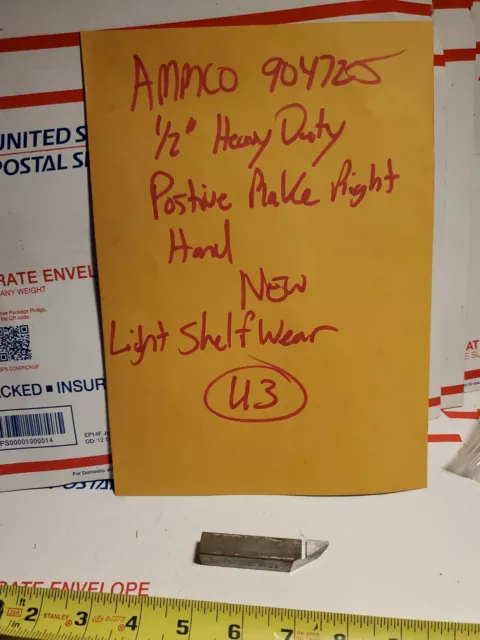 AMMCO 904725
1/2" Heavy Duty
Postive Rake Right
Hand
NEW
Light Shelf Wear
U3
UNITED S
POSTAL S
RATE ENVEL
ANY WEIGHT
PS.COM/PICKUP
CKED ▪ INSUR
PS00001000014
EP14F
For Domestic
POSTA
RATE ENVELOPE
ft
2 3 STANLEY 4 5 6 7 8